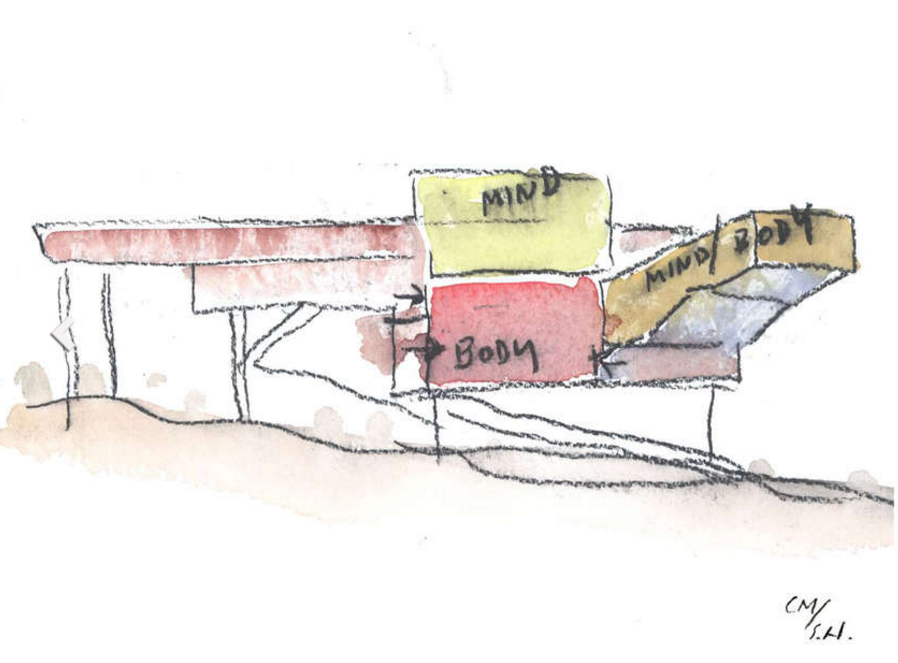 MIND
MIND/BODY
BODY
CM/
S.H.